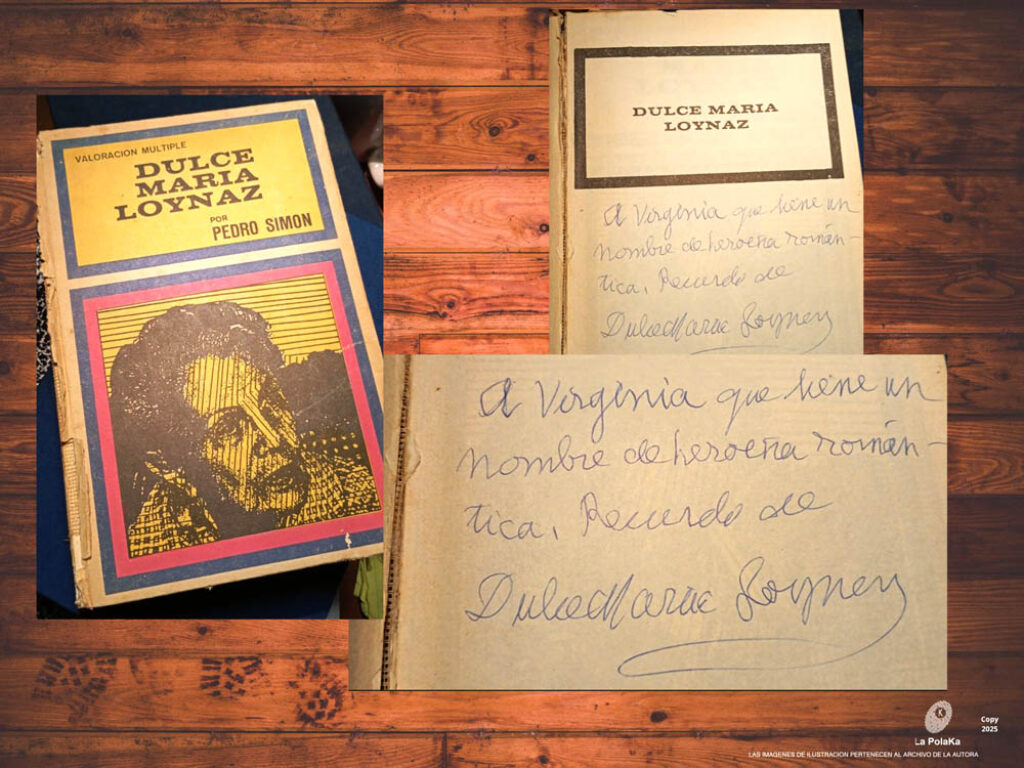 VALORACION MULTIPLE
DULCE
MARIA
LOYNAZ
POR
PEDRO SIMON
DULCE MARIA
LOYNAZ
A Virginia que tiene un
nombre de heroeña román-
tica. Recuerdo de
Dulce María Loynaz
A Virginia que tiene un
nombre de heroeña román-
tica. Recuerdo de
Dulce María Loynaz
K
La PolaKa
Copy
2025
LAS IMAGENES DE ILUSTRACION PERTENECEN AL ARCHIVO DE LA AUTORA